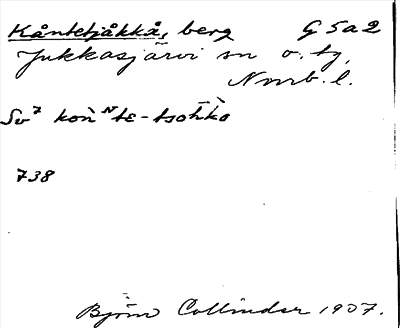 Kåntetjåkkå, berg G 5a2
Jukkasjärvi sn o. tg,
Nrrb. l.
Sv⁷ kon̄ᴺte-tsoh̄ko
738
Björn Collinder 1907.